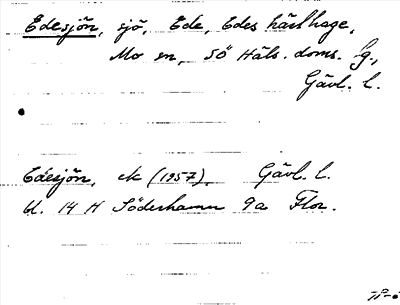 Edesjön, sjö, Ede, Edes häradshage,
Mo sn, SÖ Häls. doms. lg.,
Gävl. l.
Edesjön, ek (1957), Gävl. l.
bl. 14 H Söderhamn 9a Flor.